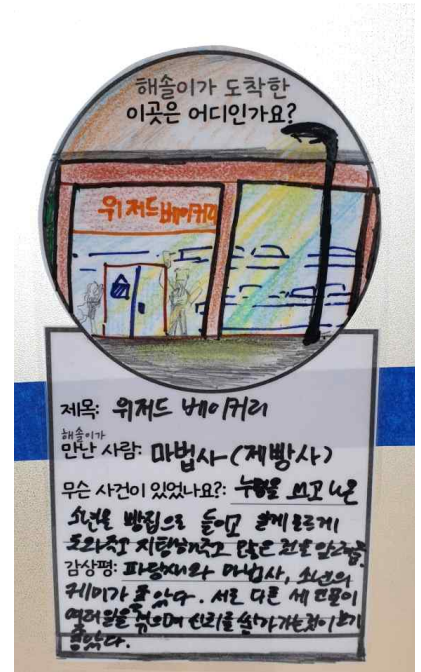 해솔이가 도착한
이곳은 어디인가요?
위저드 베이커리
제목: 위저드 베이커리
해솔이가
만난 사람: 마법사(제빵사)
무슨 사건이 있었나요?: 누명을 쓰고 나온
소년을 빵집으로 들이고 알게모르게
도와주고 지탱해주고 많은 것을 알려줌.
감상평: 파랑새와 마법사, 소년의
케미가 좋았다. 서로 다른 세 인물이
여러일을 겪으며 신뢰를 쌓아가는것이 보기
좋았다.